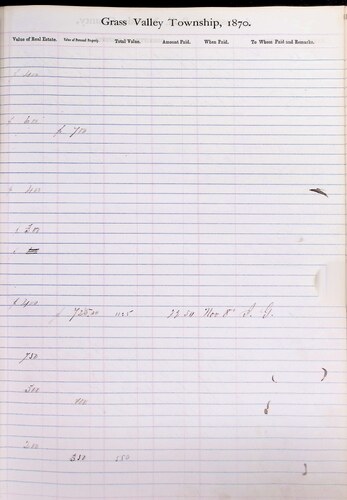 Grass Valley Township, 1870.
Value of Real Estate. Value of Personal Property. Total Value. Amount Paid. When Paid. To Whom Paid and Remarks.
400
600
700
400
500
400
725.00 1125 23 50 Nov 8
750
500
350 550